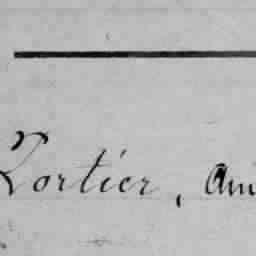 Fortier, Am